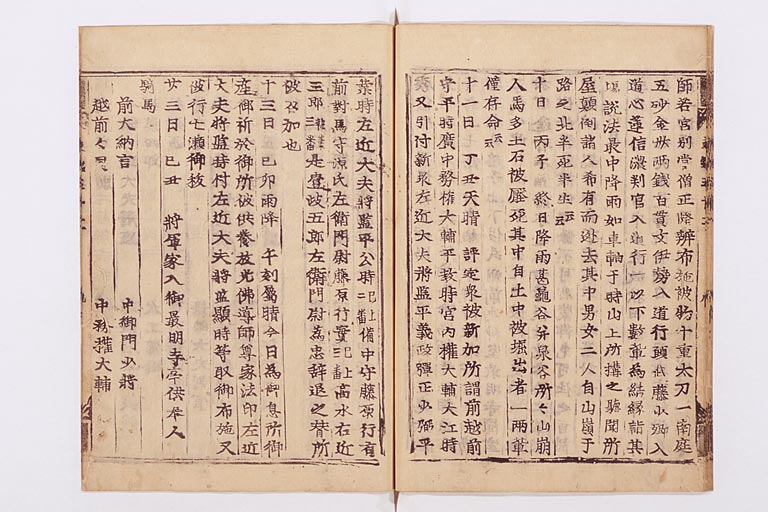 師若宮別當僧正隆辨布施被物十重太刀一南庭
五砂金廿兩錢百貫文伊勢入道行願武藤少卿入
道心蓮信濃判官入道行一以下數輩為結縁詣其
說法最中降雨如車軸于時山上所構之聽聞所
屋顚倒諸人希有而迯去其中男女二人自山嶺于
路之北半死半生云云
十日 丙子 終日降雨甚龜谷并泉谷所々山崩
人馬多土石被壓死其中自土中被堀出者一兩輩
僅存命云云
十一日 丁丑天晴 評定衆被新加所謂前越前
守平時廣中務權大輔平敎時宮內權大輔大江時
秀又引付新衆左近大夫將監平義政彈正少弼平
業時左近大夫將監平公時已上備中守藤原行有
前對馬守源氏左衛門尉藤原行實已上高水右近
三郎 是壹岐五郎左衛門尉為忠辭退之替所
被召加也
十三日 己卯雨降 午刻屬晴今日為御息所御
產御祈於御所被供養放光佛導師尊家法印左近
大夫將監時村左近大夫將監顯時等取御布施又
被行七瀬御祓
廿三日 己丑 將軍家入御最明寺亭供奉人
騎馬
前大納言 中御門少將
越前々司 中務權大輔